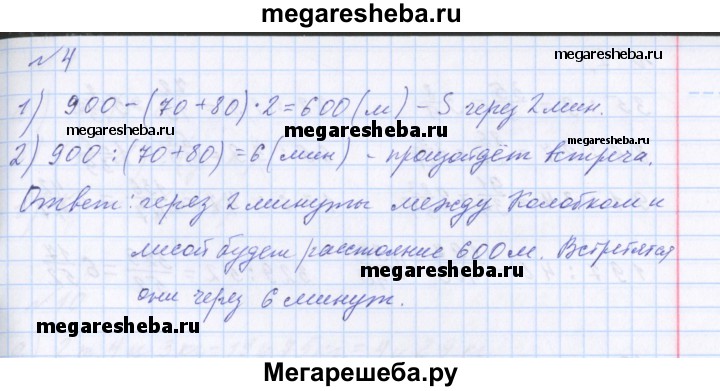 megaresheba.ru
№4
megaresheba.ru
1) 900-(70+80)·2=600(м) - S через 2 мин.
megaresheba.ru megaresheba.ru megaresheba.ru
2) 900:(70+80)=6(мин) - произойдёт встреча.
Ответ: через 2 минуты между Колобком и
лисой будет расстояние 600м. Встретятся
megaresheba.ru
они через 6 минут.
megaresheba.ru
Мегарешеба.ру